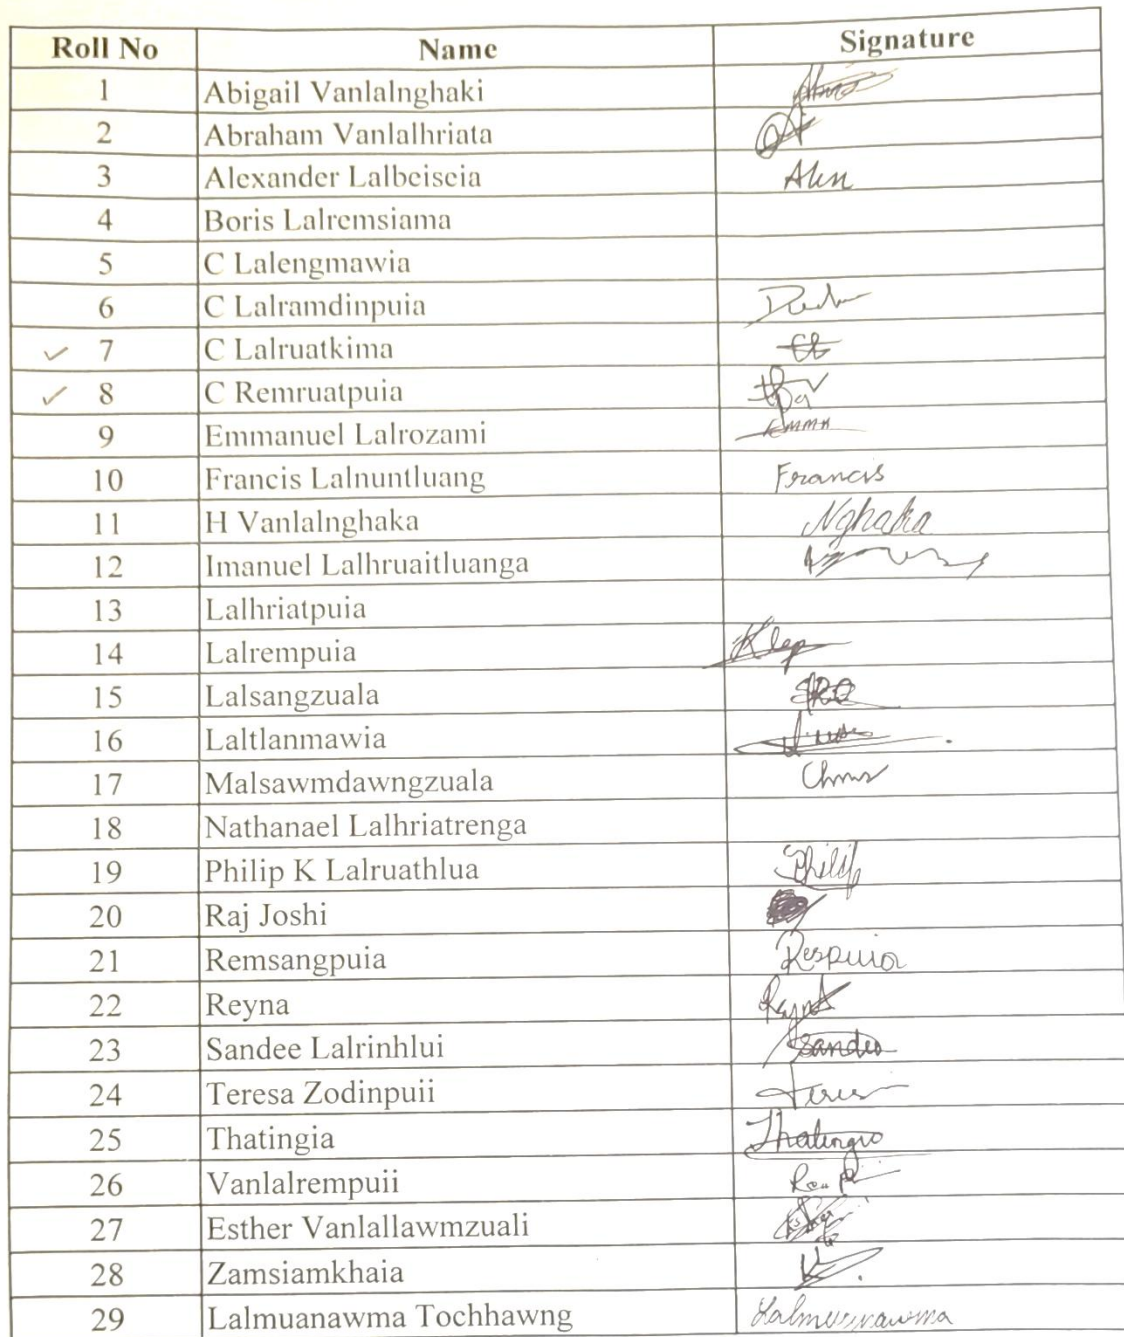 Roll No Name Signature
1 Abigail Vanlalnghaki
2 Abraham Vanlalhriata
3 Alexander Lalbeiseia Alen
4 Boris Lalremsiama
5 C Lalengmawia
6 C Lalramdinpuia
✓ 7 C Lalruatkima
✓ 8 C Remruatpuia
9 Emmanuel Lalrozami Emma
10 Francis Lalnuntluang Francis
11 H Vanlalnghaka Nghaka
12 Imanuel Lalhruaitluanga
13 Lalhriatpuia
14 Lalrempuia
15 Lalsangzuala
16 Laltlanmawia
17 Malsawmdawngzuala
18 Nathanael Lalhriatrenga
19 Philip K Lalruathlua Philip
20 Raj Joshi
21 Remsangpuia Respuia
22 Reyna
23 Sandee Lalrinhlui Sandee
24 Teresa Zodinpuii
25 Thatingia Thatingia
26 Vanlalrempuii
27 Esther Vanlallawmzuali
28 Zamsiamkhaia
29 Lalmuanawma Tochhawng Lalmuanawma